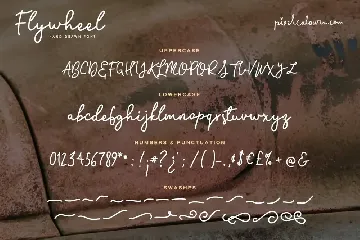 Flywheel
HAND DRAWN FONT
pixelcolours.com
UPPERCASE
ABCDEFGHIJKLMNOPQRSTUVWXYZ
LOWERCASE
abcdefghijklmnopqrstuvwxyz
NUMBERS & PUNCTUATION
0123456789
SWASHES